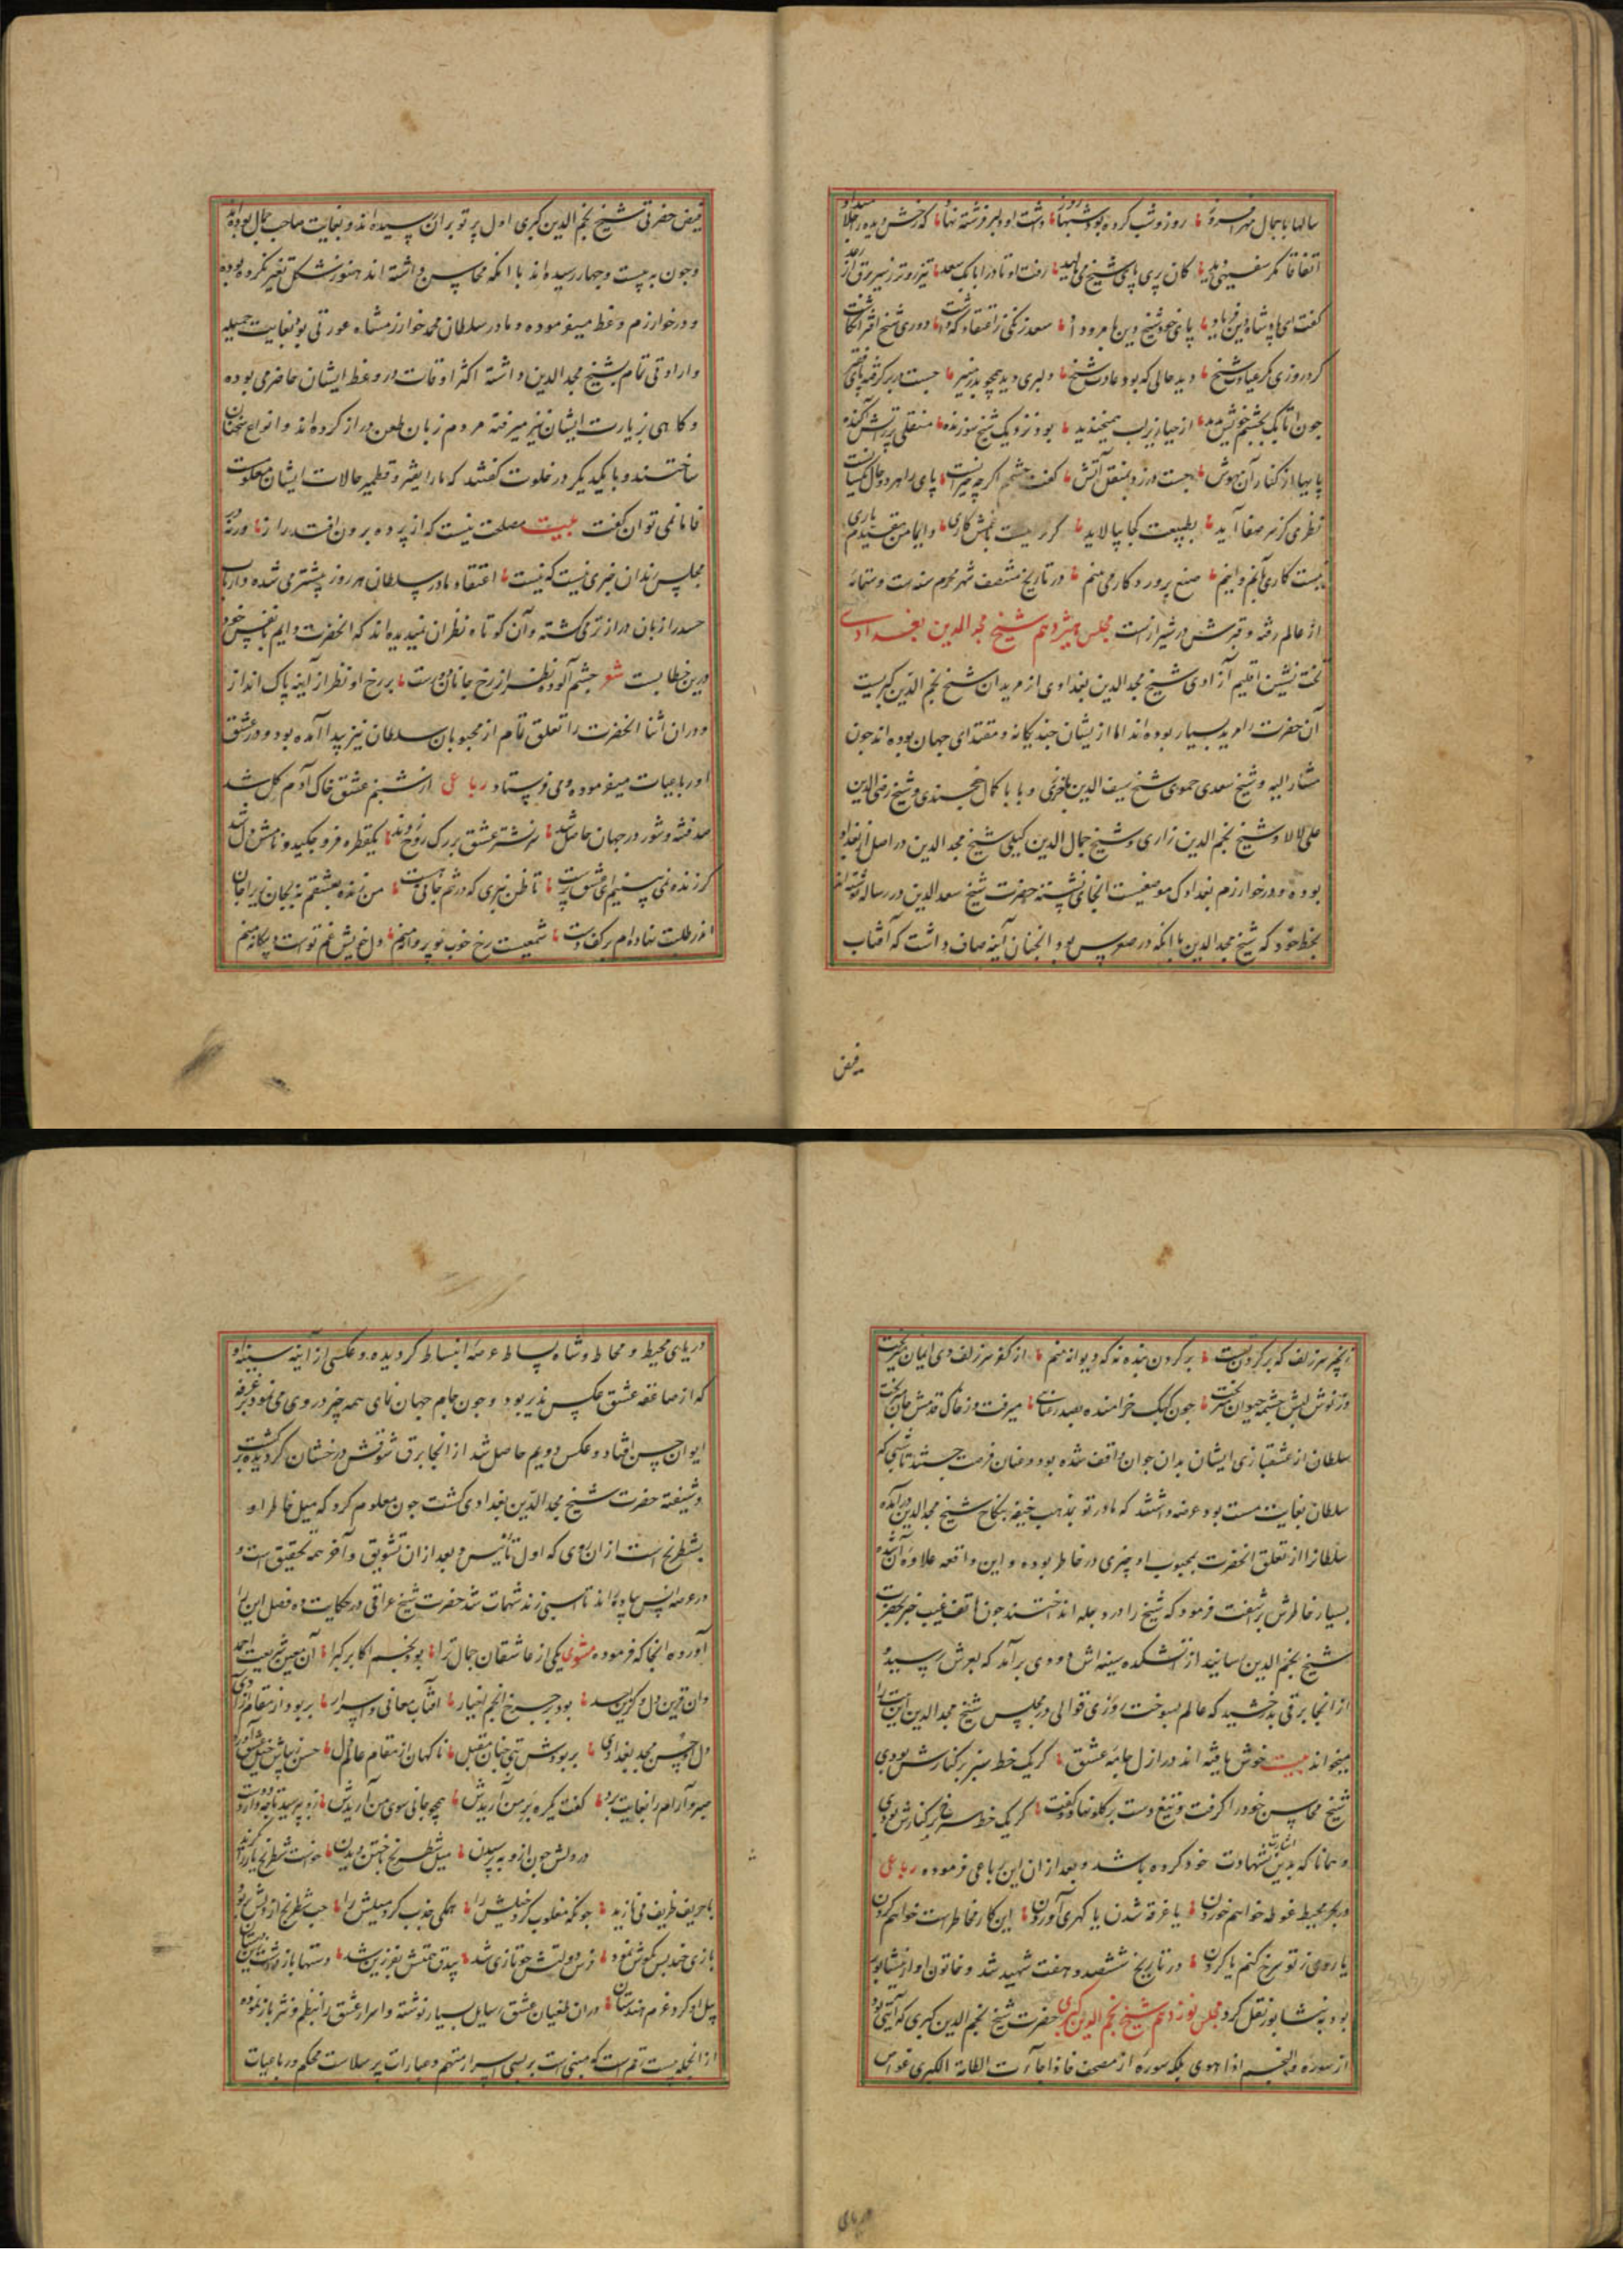 سالها با جمال مهر افروز روز و شب کرده بود شبها روز داشت او دلبر فرشته نهاد که رخش دیده را جلا میداد
اتفاقا مگر سفیهی دید کان پری پای شیخ می‌مالید رفت او تا در اتابک سعد تیز رو تر ز سیر برق از رعد
گفت ای پادشاه دین فریاد پای خود شیخ دین بامرد داد سعد زنگی ز اعتقاد که داشت دوری شیخ افترا انگاشت
کرد روزی مگر عیادت شیخ دید حالی که بود عادت شیخ دلبری دید همچو بدر منیر جست در بر گرفته پای فقیر
چون اتابک بچشم خویش بدید از حیا زیر لب همیخندید بود نزدیک شیخ سوزنده منقلی پر ز آتش آکنده
پایها از کنار آن مهوش جست در زد بمنقل آتش گفت چشم اگر چه حیرانست پای را هر دو حال یکسانست
نظری کز سر صفا آید بطبیعت کجا بیالاید
نیست کاری بآنم و اینم صنع پروردگار می‌بینم در تاریخ منتصف شهر محرم سنه ست و ستمائه
از عالم رفته و قبرش در شیراز است مجلس هیژدهم شیخ مجد الدین بغدادی
تخت نشین اقلیم آزادی شیخ مجد الدین بغدادی از مریدان شیخ نجم الدین کبریست
آن حضرت را مرید بسیار بوده‌اند اما از یشان چند یگانه و مقتدای جهان بوده‌اند چون
مشار الیه و شیخ سعدی حموی شیخ سیف الدین باخرزی و بابا کمال خجندی و شیخ رضی الدین
علی لالا و شیخ نجم الدین رازی و شیخ جمال الدین کیلی شیخ مجد الدین در اصل از بغداد
بوده و در خوارزم بغدادک موضعیست آنجا می‌نشسته حضرت شیخ سعد الدین در رساله نوشته‌اند
بخط خود که شیخ مجد الدین با آنکه در صورس بود آنچنان آینه صاف داشت که آفتاب
فیض
فیض حضرتی شیخ نجم الدین کبری اول پرتو بر آن رسیده‌اند و بغایت صاحب جمال بوده‌اند
و چون به بیست و چهار رسیده‌اند با آنکه محاسن داشته‌اند هنوز شکل تغیر نکرده بوده
و در خوارزم وعظ میفرموده و مادر سلطان محمد خوارزمشاه عورتی بود بغایت جمیله
و ارادتی تمام بشیخ مجد الدین داشته اکثر اوقات در وعظ ایشان حاضر می بوده
و کاهی بزیارت ایشان نیز میرفته مردم زبان طعن دراز کرده‌اند و انواع سخنان
ساختند و با یکدیگر در خلوت گفتند که ما را نقیر و قطمیر حالات ایشان معلومست
فاما نمی توان گفت بیت مصلحت نیست که از پرده برون افتد راز ورنه در
مجلس رندان خبری نیست که نیست اعتقاد مادر سلطان هر روز بیشتر می شده و ارباب
حسد را زبان درازتر می گشته و آن کوتاه نظران نمیدیده‌اند که آنحضرت دایم با نفس خود
درین خطابست شعر چشم آلوده نظر از رخ جانان دورست بر رخ او نظر از آینه پاک انداز
و در ان اثنا آنحضرت را تعلق تمام از محبوبان سلطان نیز پیدا آمده بود و در عشق
او رباعیات میفرموده و می فرستاده رباعی از شبنم عشق خاک آدم گل شد
صد فتنه و شور در جهان حاصل شد سر نشتر عشق بر رگ روح زدند یکقطره فرو چکید و نامش دل شد
گر زنده نمی بینیم ای عشق پرست تا ظن نبری که در تنم جانی هست من زنده بعشقم نه بجان زیرا جان
اندر طلبت نهاده‌ام بر کف دست شمعیست رخ خوب تو پروانه منم دل خویش غم توست و بیگانه منم
زنجیر سر زلف که بر گردن تست بر گردن بنده نه که دیوانه منم از کفر سر زلف وی ایمان میریخت
وز نوش لبش چشمه حیوان میریخت چون کبک خرامنده بصد رعنایی میرفت و ز خاک قدمش جان میریخت
سلطان از عشقبازی ایشان بدان جوان واقف شده بود دشمنان فرصت جستند تا شبی که
سلطان بغایت مست بود عرضه داشتند که مادر تو بمذهب حنیفه بنکاح شیخ مجد الدین درآمده
سلطانرا از تعلق آنحضرت بمحبوب او چیزی در خاطر بوده و این واقعه علاوه آن شده
بسیار خاطرش برآشفت فرمود که شیخ را در دجله انداختند چون هاتف غیب خبر بحضرت
شیخ نجم الدین رسانید از آتشکده سینه‌اش دودی برآمد که بعرش رسید و
از آنجا برقی بدرخشید که عالم بسوخت روزی قوالی در مجلس شیخ مجد الدین این بیت را
میخواند بیت خوش بافته‌اند در ازل جامه عشق گر یک خط سبز بر کنارش بودی
شیخ محاسن خود را گرفت و تیغ دست بر گلو نهاد و گفت گر یک خط سرخ بر کنارش بودی
و همانا که بدین اشارت بشهادت خود کرده باشد و بعد از ان این رباعی فرموده رباعی
در بحر محیط غوطه خواهم خوردن یا غرقه شدن یا گهری آوردن این کار مخاطرست خواهم کردن
یا روی ز تو سرخ کنم یا گردن در تاریخ ششصد و هفت شهید شد و خاتون او از نیشابور
بود به نشابور نقل کرد مجلس نوزدهم شیخ نجم الدین کبری حضرت شیخ نجم الدین کبری که آیتی بود
از سوره والنجم اذا هوی بلکه سوره از مصحف فاذا جاءت الطامة الکبری غواص
دریای
دریای محیط و محاط و شاه بساط عرصه انبساط گردیده و عکسی از آینه سینه او
که از صاعقه عشق عکس پذیر بود و چون جام جهان نمای همه چیز در وی می نمود بر غرفه
ایوان حسن افتاد و عکس دویم حاصل شد از آنجا برق شوقش درخشان گردیده برگشت
و شیفته حضرت شیخ مجد الدین بغدادی گشت چون معلوم کرد که میل خاطر او
بشطرنج است از ان روی که اول تأنیس و بعد از ان تشویق و آخر همه تحقیق است و
حضرت شیخ عراقی در حکایت ده فصل این را
آورده آنجا که فرموده مثنوی یکی از عاشقان جمال ترا بود نجم اکابر کبرا آن معین شریعت احمد
بود بر چرخ انجم انهار آفتاب معانی و اسرار بربود از مقام
دل او حسن مجد بغدادی بربودش بتی چنان مقبل ناگهان از مقام عالم دل حسن زیباش خیل عشق آورد
صبر و آرام را بغایت برد گفت یکره بر من آریدش همچو جانی سوی من آریدش زو بپرسید تا چه دارد دوست
در دلش چون ازو بپرسیدن میل شطرنج باختن دیدن خواست شطرنج
با حریف ظریف می بازید چونکه مغلوب کرد خیلش را همگی جذب کرد میلش را
بازی چند بس نکوش نمود فرس دولتش چو تازی شد بیدق همتش بفرزین شد
پیل او کرد عزم هندستان در ان طغیان عشق رسایل بسیار نوشته و اسرار عشق را بنظم و نثر باز نموده
از آنجمله بیست رقم است که مبنی است بر بسی اسرار مبهم و عبارات پر سلاست محکم و رباعیات